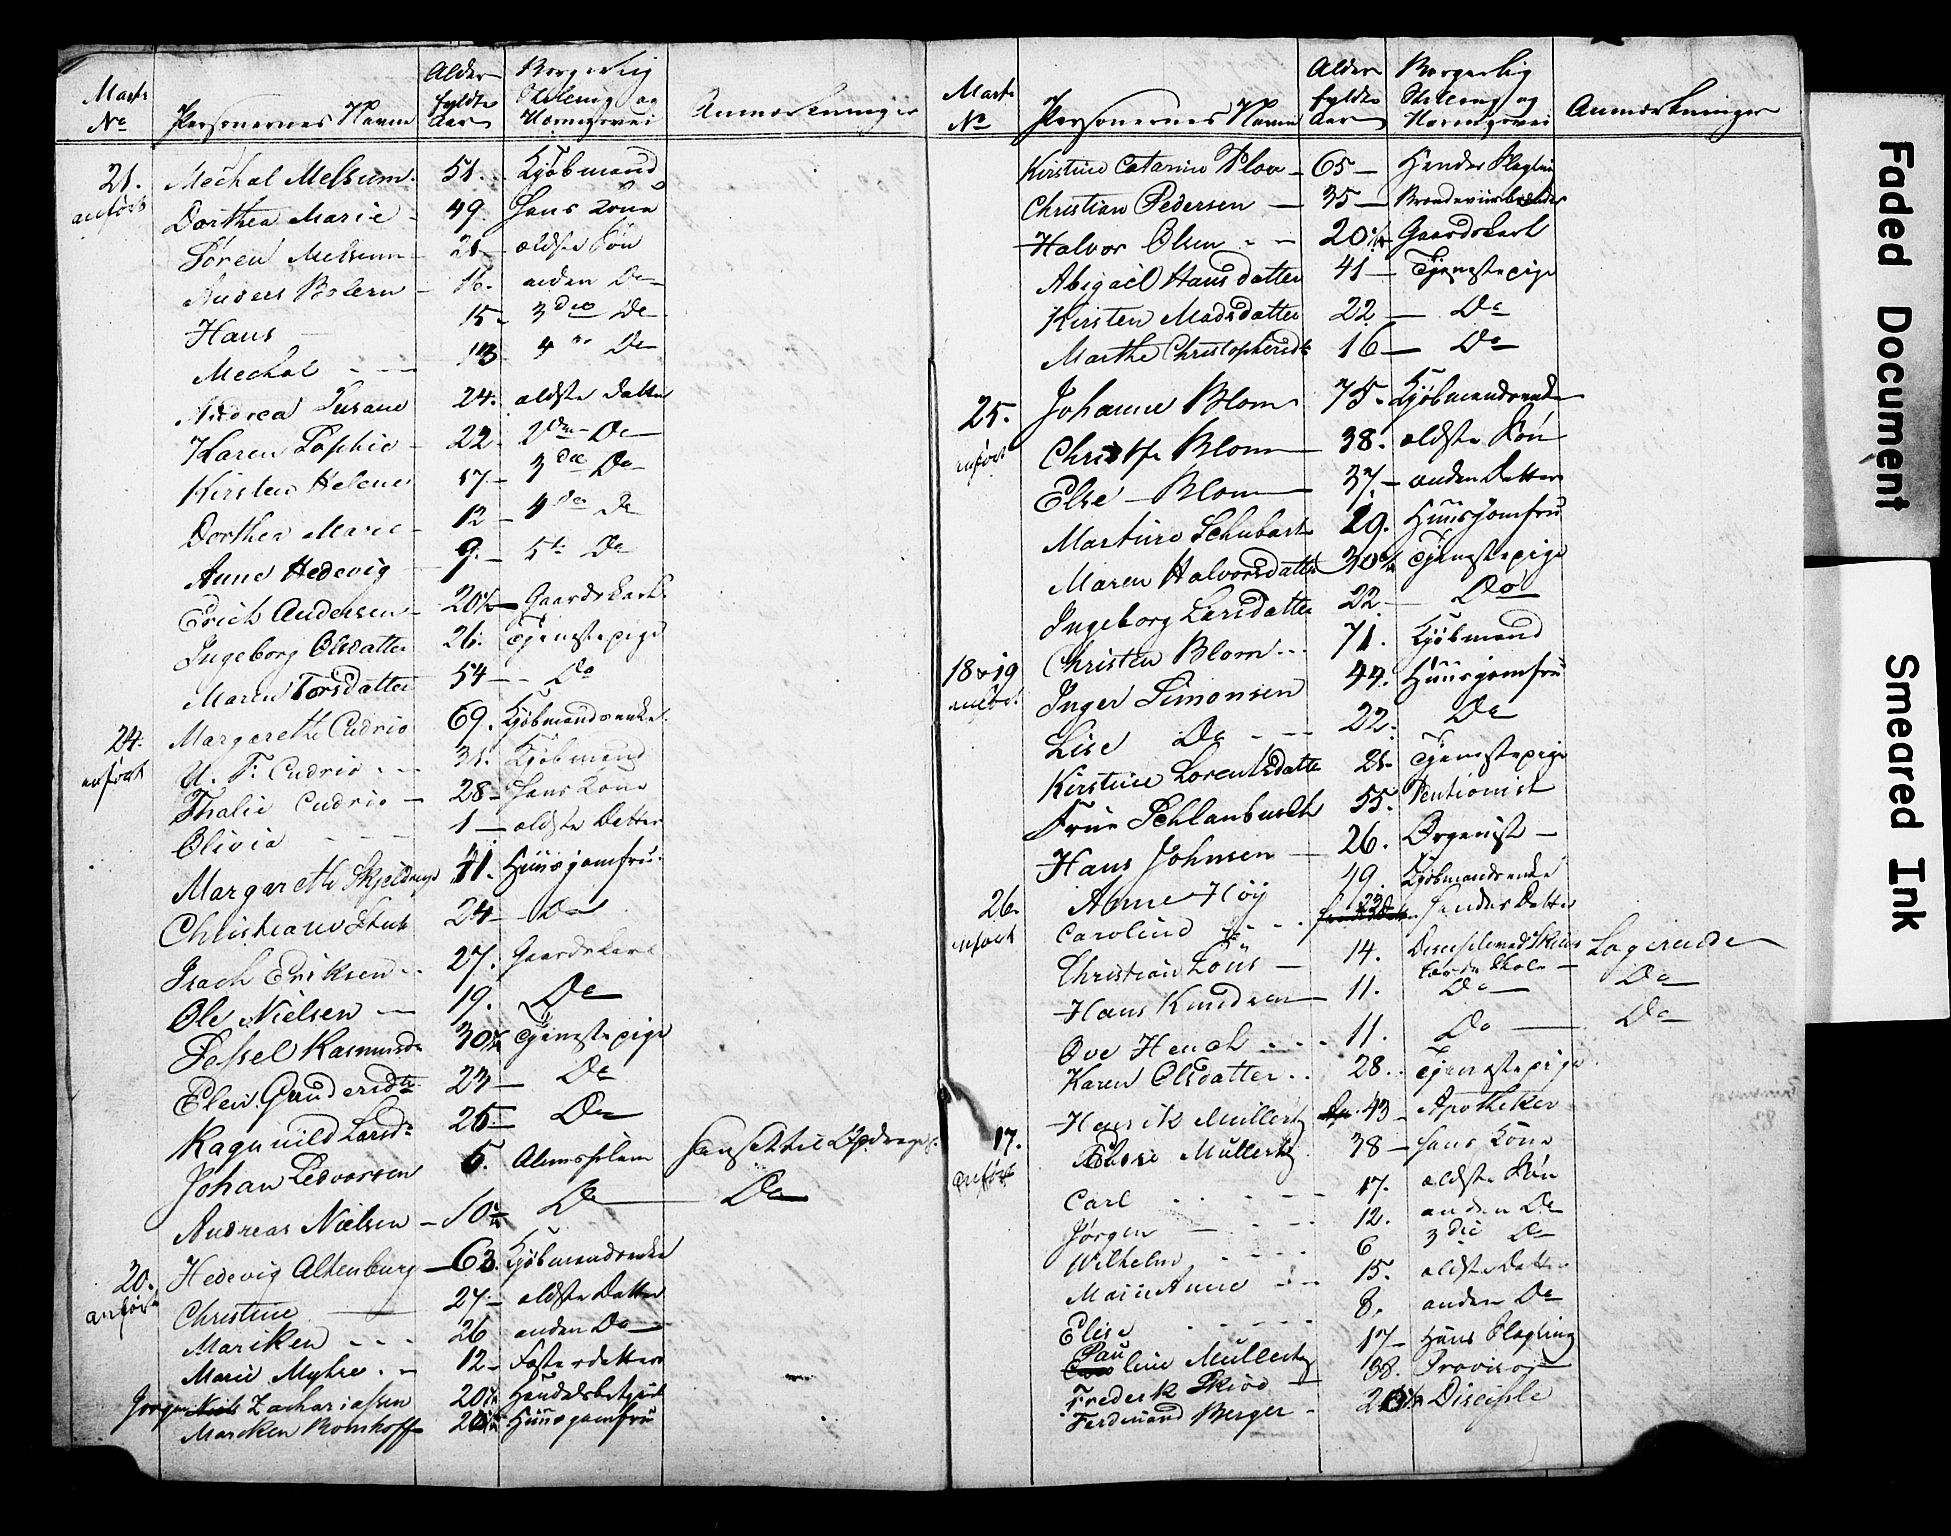 Matr No Personernes Navne Alder fyldte Aar Borgerlig Stilling og Næringsvei Anmærkninger
21. Mechal Melsum 51. Kjøbmand
anført Dorthea Marie - 49. Hans Kone
Søren Melsum - 21 - ældste Søn
Anders - 16. anden Do
Hans 15 - 3die Do
Mechal - - - 13 4 Do
Andrea Susane 24. ældste Datter
Karen Sophie - 22 - 2den Do
Kirsten Helene 17 - 3die Do
Dorthea Marie - 12 - 4de Do
Anne Hedevig 9. - 5te Do
Erich Andersen - 20 Gaardskarl
Ingeborg Olsdatter 26. Tjenestepige
Maren Torsdatter 54 - - Do
24. Margarethe Cudrio 69. Kjøbmandsenke
anført U. F. Cudrio - - - 31. Kjøbmand
Thalie Cudrio - 28 - Hans Kone
Olivia - - - 1 - ældste Datter
Margarethe 41. Huusjomfru
Christiane 24 - Do
Isach Eriksen - 27. Gaardskarl
Ole Nielsen - 19. Do
Sessel Rasmusd 30 Tjenestepige
Elen Gundersdtr 23 - Do
Ragnild Larsdr 25 Do
Johan Sedvorsen 5. Almisselem hensat til Opdragelse
Andreas Nielsen - 10 Do Do
20. Hedevig Altenburg - 63. Kjøbmandsenke
anført Christine 27 - ældste Datter
Mariken - - - 26 anden Do
Marie Myhre - - 12 - Fosterdatter
Jorgen Niels Zachariassen 20 Handelsbetjent
Mariken Bomhoff 20 Huusjomfru
Matr No Personernes Navne Alder fyldte Aar Borgerlig Stilling og Næringsvei Anmærkninger
Kirstine Catarine Plow - 65 - Hendes Pleg
Christian Pedersen - 35 - Brændeviinbrænder
Halvor Olsen - - 20 Gaardskarl
Abigael Hansdatter 41 - Tjenestepige
Kirsten Madsdatter 22 - Do
Marthe Christophersdtr 16 - Do
25. Johanne Blom 75 - Kjøbmandsenke
anført Christfe Blom 38. ældste Søn
Else - Blom 37 - anden Datter
Martine Schubart 29. Huusjomfru
Maren Halvorsdatter 30 Tjenestepige
Ingeborg Larsdatter 22 - Do
18 & 19 Christen Blom - - 71. Kjøbmand
anført Inger Simonsen 44. Huusjomfru
Lise Do - - - 22. Do
Kirstine Lorentsdatter 21 - Tjenestepige
Frue Schlanbusch 55. Pentionist
Hans Johnsen - 26. Organist -
26. Anne Høÿ 49. Kjøbmandsenke
anført Caroline - - - 23 hendes Datter
Christian - 14. Disciple ved Skiens lærde Skole - Logerende
Hans Knudsen 11. Do Do
Ove Heuch - - - 11. Do Do
Karen Olsdatter - - 28. - Tjenestepige
17. Henrik Mullertz 43 - Apotheker
anført Else Mullertz 38 - Hans Kone
Carl - - - 17. ældste Søn
Jørgen - - - 12. anden Do
Wilhelm - - - 6 3die Do
Marie Anne - - 15. ældste Datter
Elise - - - 8. anden Do
Pauline Mullertz 17 - Hans Plegling
Frederik Skiød 18. Provisor
Ferdinand Berger - 20 Disciple
Faded Document
Smeared Ink